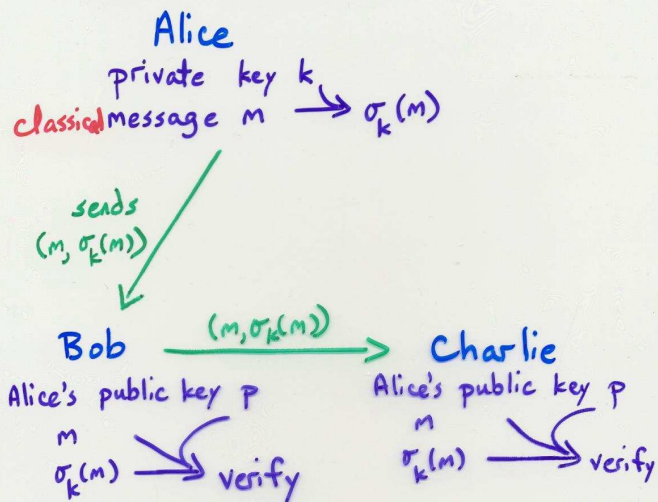 Alice
private key k
classical message m → σₖ(m)
sends
(m, σₖ(m))
Bob
(m, σₖ(m))
Charlie
Alice's public key p
m
σₖ(m) → verify
Alice's public key p
m
σₖ(m) → verify